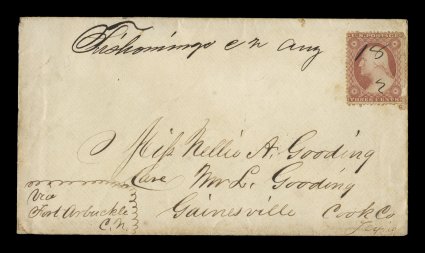 Tishomingo C N Aug 18
U.S. POSTAGE
THREE CENTS
Miss Nellie A. Gooding
Care Wm L. Gooding
Gainesville Cook Co
Texas
Via
Fort Arbuckle
C. N.